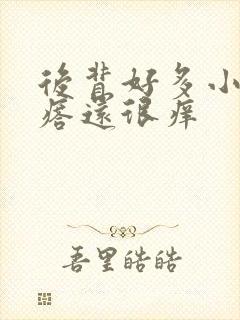 後背好多小
痞還很痒
吾里皓皓